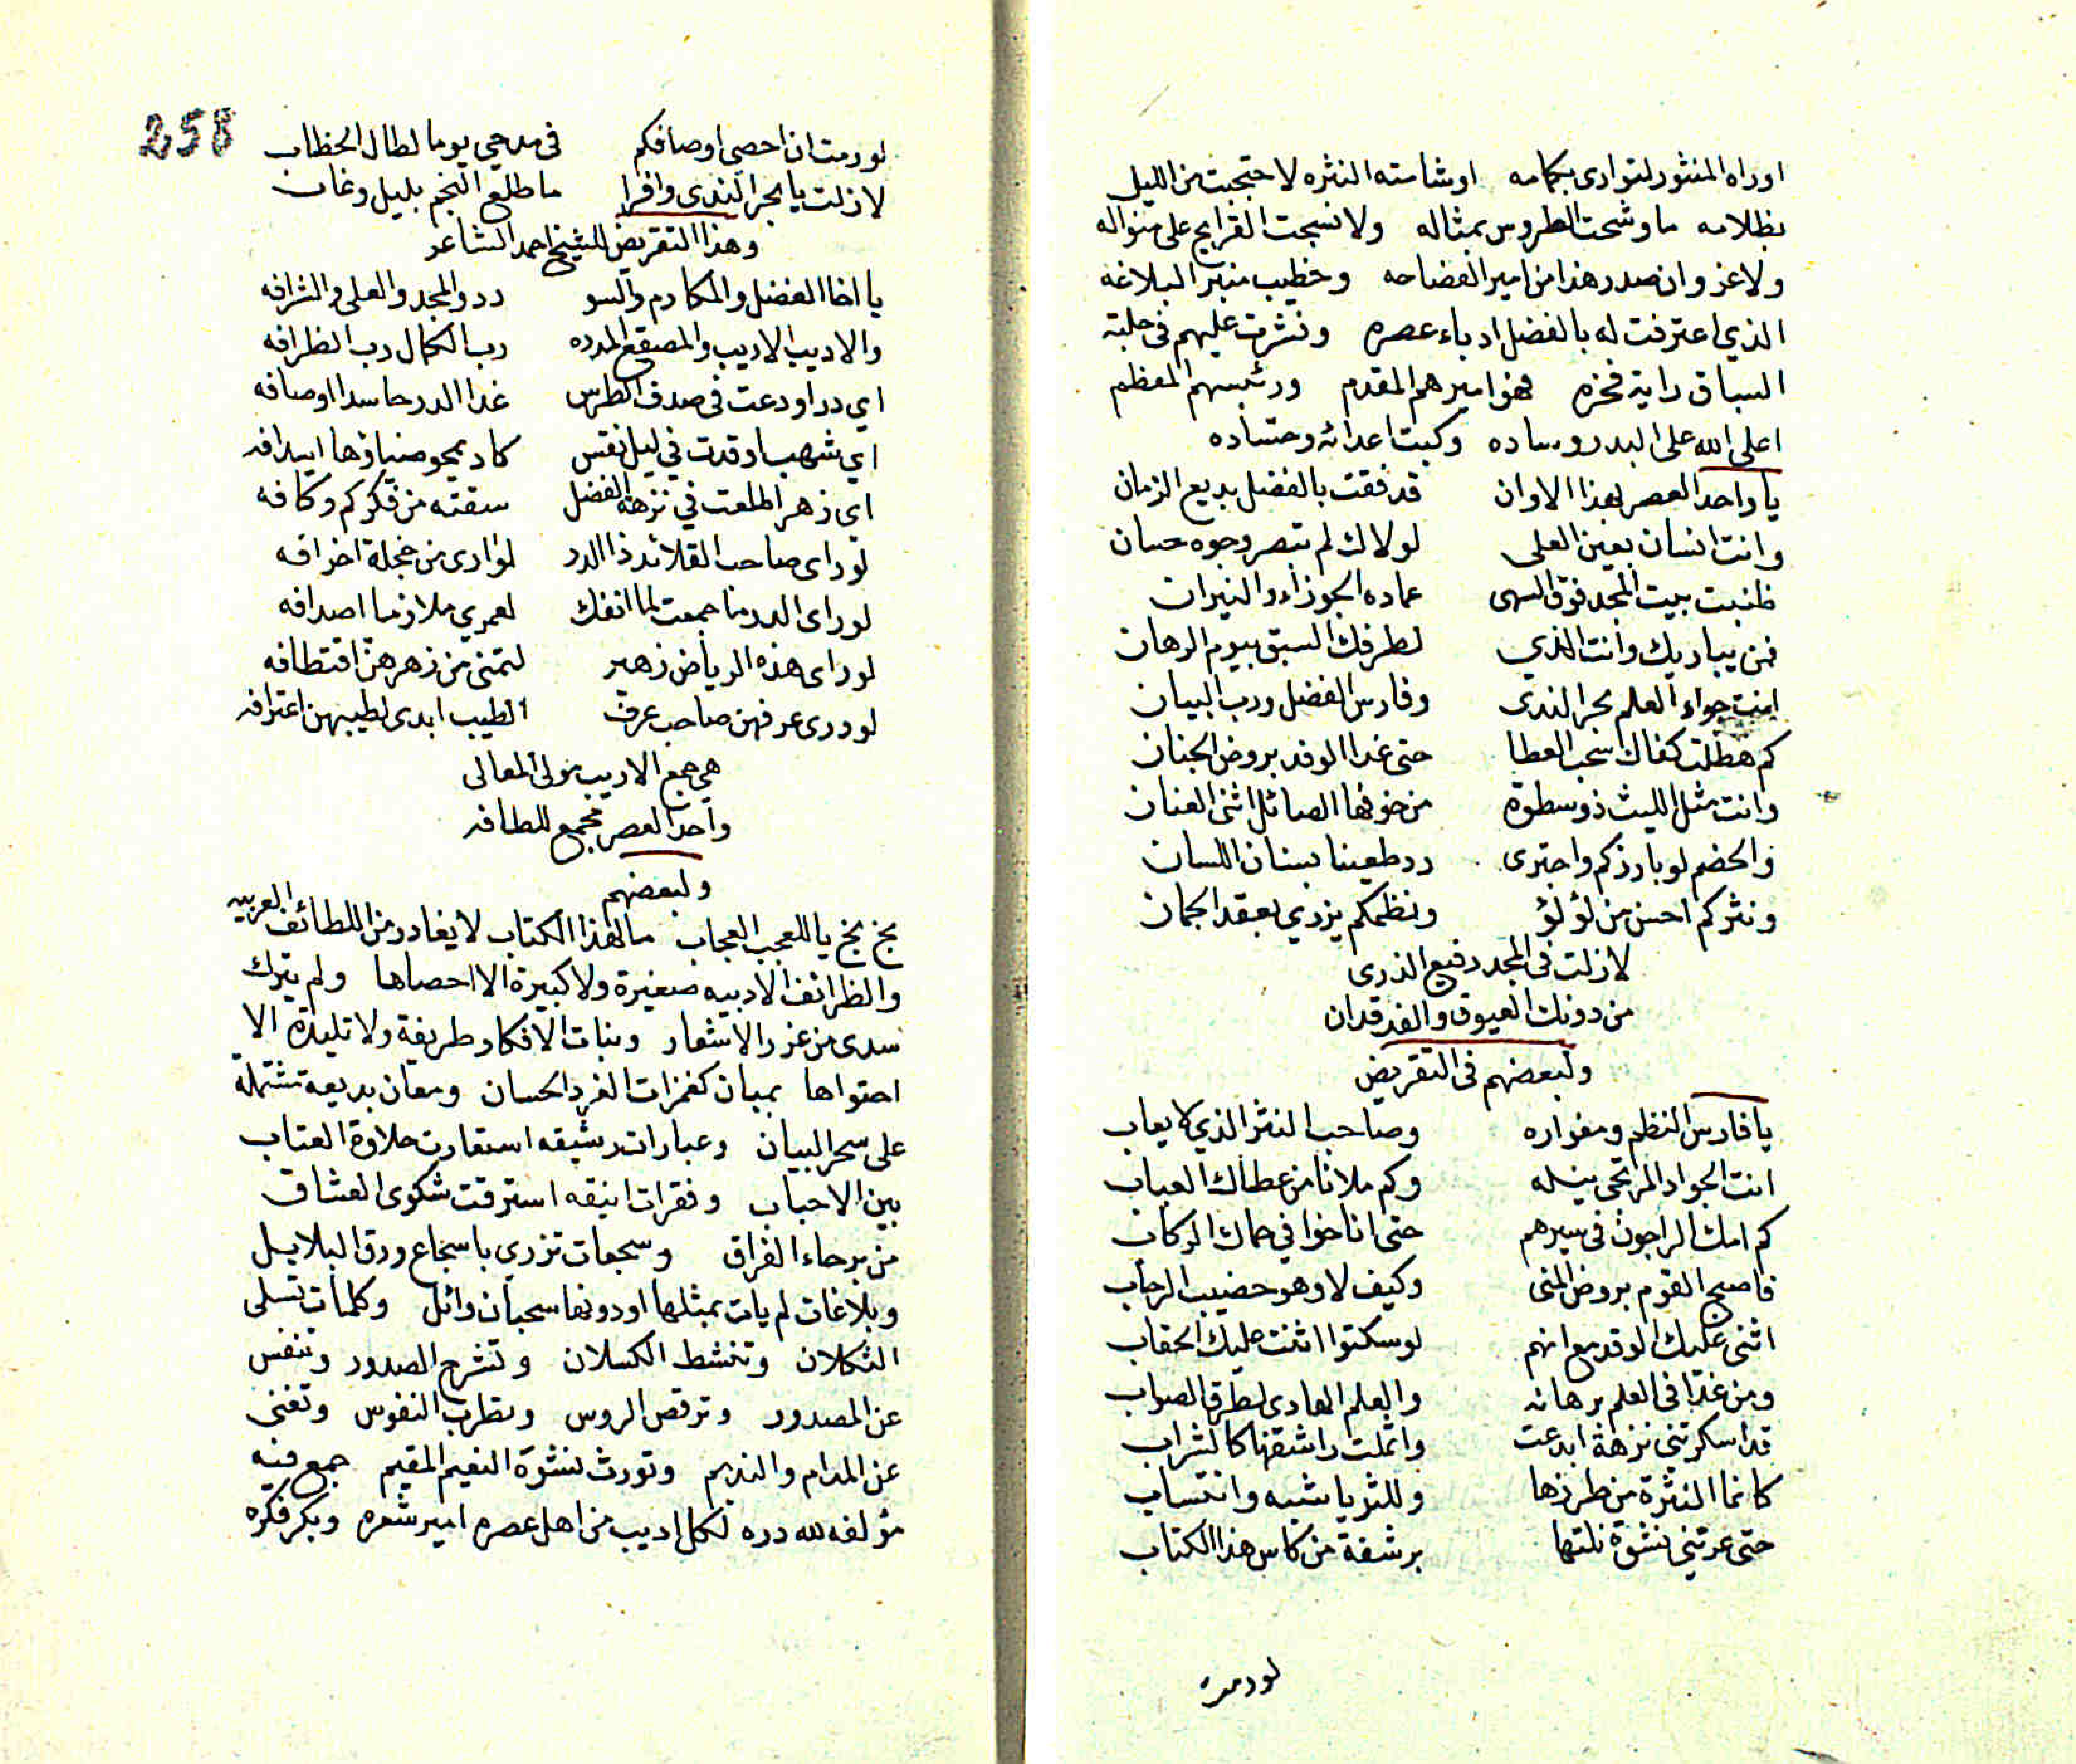 اوراه المنثور لتوارى بكمامه اوشامته النثره لاحتجبت من الليل
بظلامه ما وشحت الطروس بمثاله ولا نسجت القرايح على منواله
ولاغروان صدر هذا من امير الفصاحه وخطيب منبر البلاغه
الذي اعترفت له بالفضل ادباء عصره ونشرت عليهم في حلبة
السباق راية فخره فهو اميرهم المقدم ورئيسهم المعظم
اعلى الله على البدر وساده وكبت اعدائه وحساده
يا واحد العصر بهذا الاوان قد فقت بالفضل بديع الزمان
وانت انسان بعين العلى لولاك لم تبصر وجوه حسان
طنبت بيت المجد فوق السهى عماده الجوزاء والنيران
فمن يباريك وانت الذي لطرفك السبق بيوم الرهان
انت جواد العلم بحر الندى وفارس الفضل ورب البيان
كم هطلت كفاك سحب العطا حتى غدا الوفد بروض الجنان
وانت مثل الليث ذو سطوة من خوفها الصائل اثنى العنان
والخصم لو بارزكم واجترى رد طعينا بسنان اللسان
ونثركم احسن من لؤلؤ ونظمكم يزدي بعقد الجمان
لازلت في المجد رفيع الذرى
من دونك العيوق والفرقدان
ولبعضهم في التقريض
يا فارس النظم ومغواره وصاحب النثر الذي لا يعاب
انت الجواد المرتجى نيله وكم ملانا من عطاك العياب
كم امك الراجون في سيرهم حتى اناخوا في حماك الركاب
فاصبح القوم بروض المنى وكيف لا وهو خصيب الرحاب
اثنى عليك الوفد مع انهم لو سكتوا اثنت عليك الحقاب
ومن غدا في العلم برهانه والعلم الهادي لطرق الصواب
قد اسكرتني نزهة ابدعت واثملت راشقها كالشراب
كانما النثرة من طرزها وللثريا شبه وانتساب
حتى عرتني نشوة نلتها برشفة من كاس هذا الكتاب
لو رمت
258
لو رمت ان احصي اوصافكم في مدحي يوما لطال الخطاب
لازلت يا بحر الندى وافرا ما طلع النجم بليل وغاب
وهذا التقريض للشيخ احمد الشاعر
يا اخا الفضل والمكارم والسو دد والمجد والعلى والشرافه
والاديب الاريب والمصقع المدره رب الكمال رب الظرافه
اي در اودعت في صدف الطرس غدا الدر حاسدا اوصافه
اي شهب اوقدت في ليل نقس كاد يمحو ضياؤها اسدافه
اي زهر اطلعت في نزهة الفضل سقته من فكركم وكافه
لو راى صاحب القلائد ذا الدر لوارى من خجلة اخزافه
لو راى الدر ما جمعت لما انفك لعمري ملازما اصدافه
لو راى هذه الرياض زهير لتمنى من زهرهن اقتطافه
لو درى عرفهن صاحب عرف الطيب ابدى لطيبهن اعترافه
هي جمع الاديب مولى المعالى
واحد العصر مجمع للطافه
ولبعضهم
بخ بخ يا للعجب العجاب ما لهذا الكتاب لا يغادر من اللطائف العربيه
والظرائف الادبيه صغيرة ولا كبيرة الا احصاها ولم يترك
سدى من غرر الاشعار وبنات الافكار طريفة ولا تليدة الا
احتواها بمبان كغمزات الغيد الحسان ومعان بديعة مشتملة
على سحر البيان وعبارات رشيقه استعارت حلاوة العتاب
بين الاحباب وفقرات انيقه استرقت شكوى العشاق
من برحاء الفراق وسجعات تزري باسجاع ورق البلابل
وبلاغات لم يات بمثلها او دونها سحبان وائل وكلمات تسلى
الثكلان وتنشط الكسلان وتشرح الصدور وتنفس
عن المصدور وترقص الروس وتطرب النفوس وتغنى
عن المدام والنديم وتورث نشوة النعيم المقيم جمع فيه
مؤلفه لله دره لكل اديب من اهل عصره امير شعره وبكر فكره